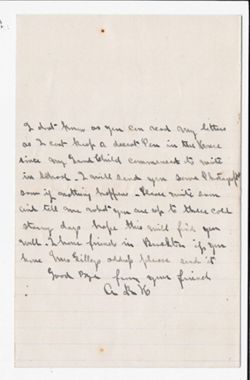 I dont know as you can read my letters
as I cant keep a decent Pen in the house
since my Grand Child commenced to write
in School. I will send you some Photografs
soon if nothing happens - Please write soon
and tell me what you are up to these cold
stormy days hope this will find you
well - I have friends in if you
have Mrs address please send it
Good Bye from your friend